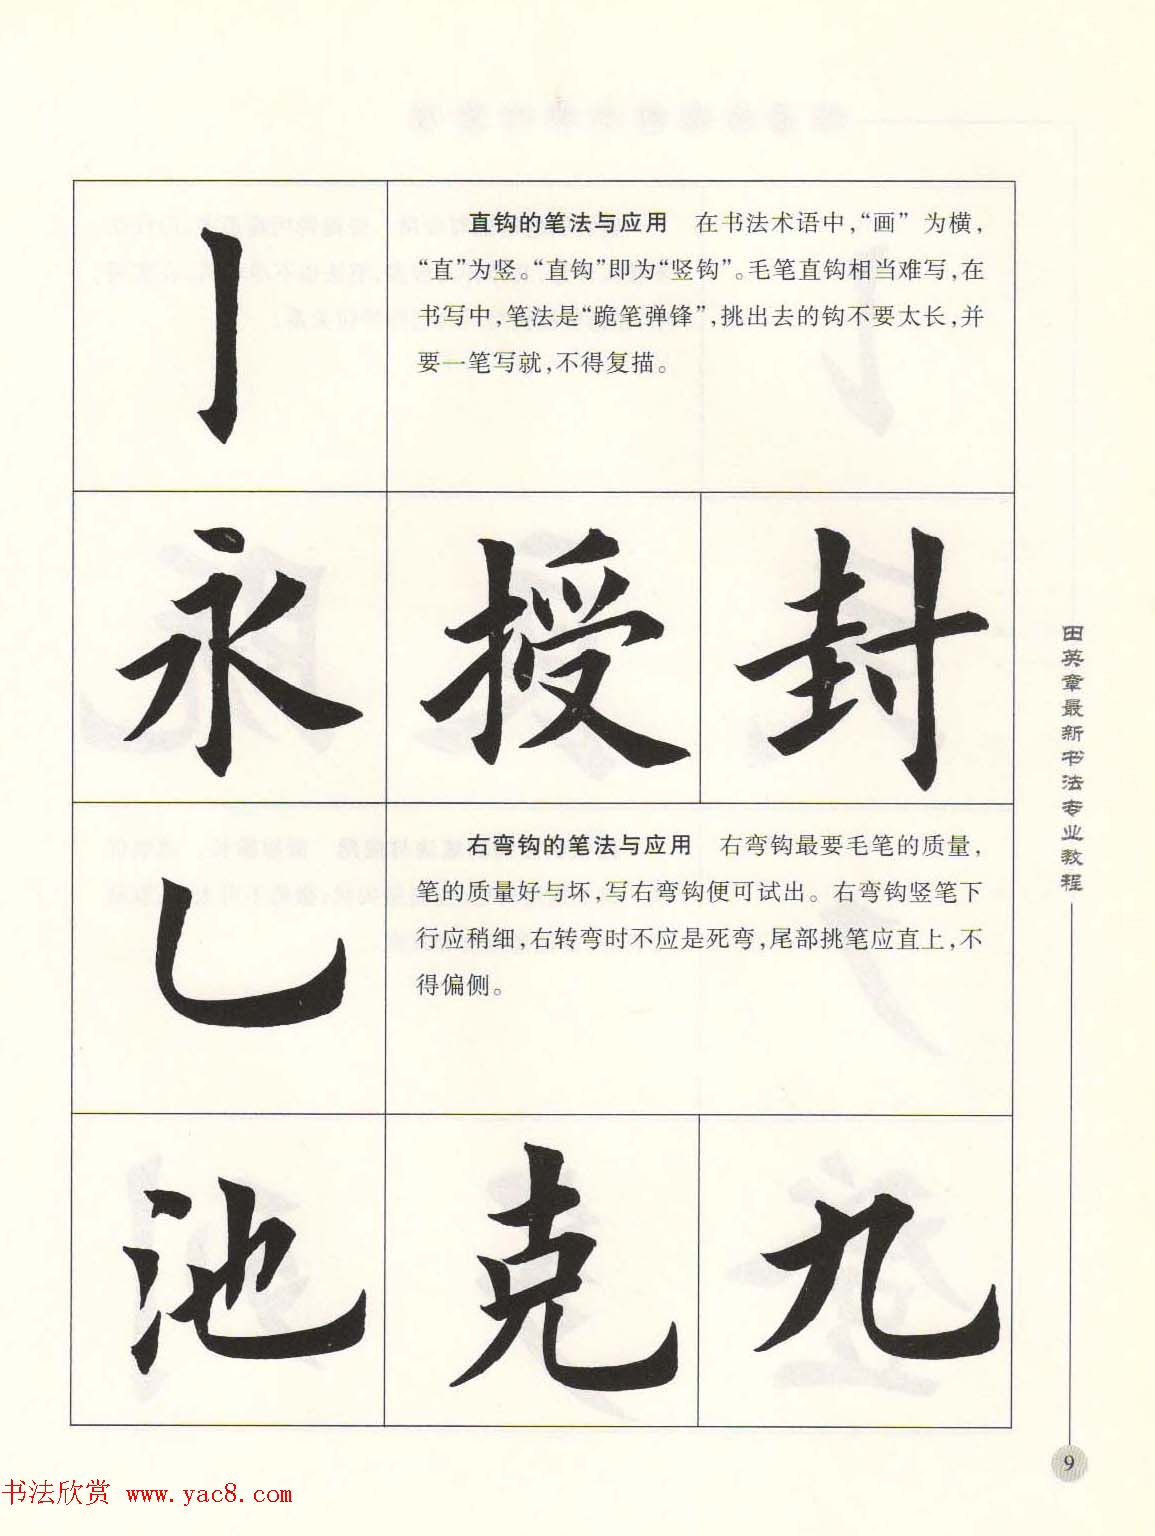 直钩的笔法与应用 在书法术语中，“画”为横，
“直”为竖。“直钩”即为“竖钩”。毛笔直钩相当难写，在
书写中，笔法是“跪笔弹锋”，挑出去的钩不要太长，并
要一笔写就，不得复描。
永 授 封
右弯钩的笔法与应用 右弯钩最要毛笔的质量，
笔的质量好与坏，写右弯钩便可试出。右弯钩竖笔下
行应稍细，右转弯时不应是死弯，尾部挑笔应直上，不
得偏侧。
池 克 九
田英章最新书法专业教程
9
书法欣赏 www.yac8.com